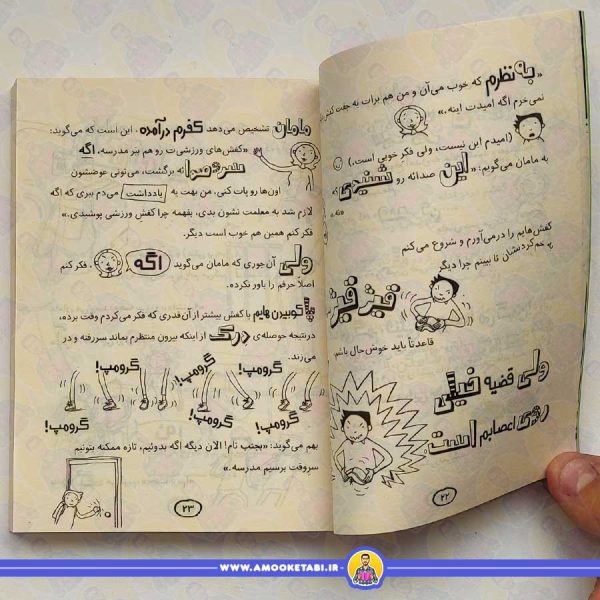 «به نظرم که خوب می‌آن و من هم برات یه جفت کفش
نمی‌خرم اگه امیدت اینه.»
(امیدم این نیست، ولی فکرِ خوبی است.)
به مامان می‌گویم: «این صدائه رو شنیدی که
کفش‌هایم را درمی‌آورم و شروع می‌کنم
خم‌کردنشان تا ببینم چرا دیگر
قیژ قیژ
قاعدتاً باید خوش‌حال باشم
ولی قضیه خیلی
روی اعصابم است.
۲۲
مامان تشخیص می‌دهد کفرم درآمده. این است که می‌گوید:
«کفش‌های ورزشی‌ت رو هم ببر مدرسه، اگه
سر و صدا نه برگشت، می‌تونی عوضشون
اون‌ها رو پات کنی. من بهت یه یادداشت می‌دم ببری که اگه
لازم شد به معلمت نشون بدی، بفهمه چرا کفش ورزشی پوشیدی.»
فکر کنم همین هم خوب است دیگر.
ولی آن‌جوری که مامان می‌گوید اگه، فکر کنم
اصلاً حرفم را باور نکرده.
پا کوبیدن هایم با کفش بیشتر از آن‌قدری که فکر می‌کردم وقت برده،
درنتیجه حوصله‌ی درک از اینکه بیرون منتظرم بماند سررفته و در
می‌زند.
گرومپ! گرومپ! گرومپ! گرومپ!
گرومپ! گرومپ! گرومپ!
بهم می‌گوید: «بجنب تام! الان دیگه اگه بدوئیم، تازه ممکنه بتونیم
سرِوقت برسیم مدرسه.»
۲۳
WWW.AMOOKETABI.IR